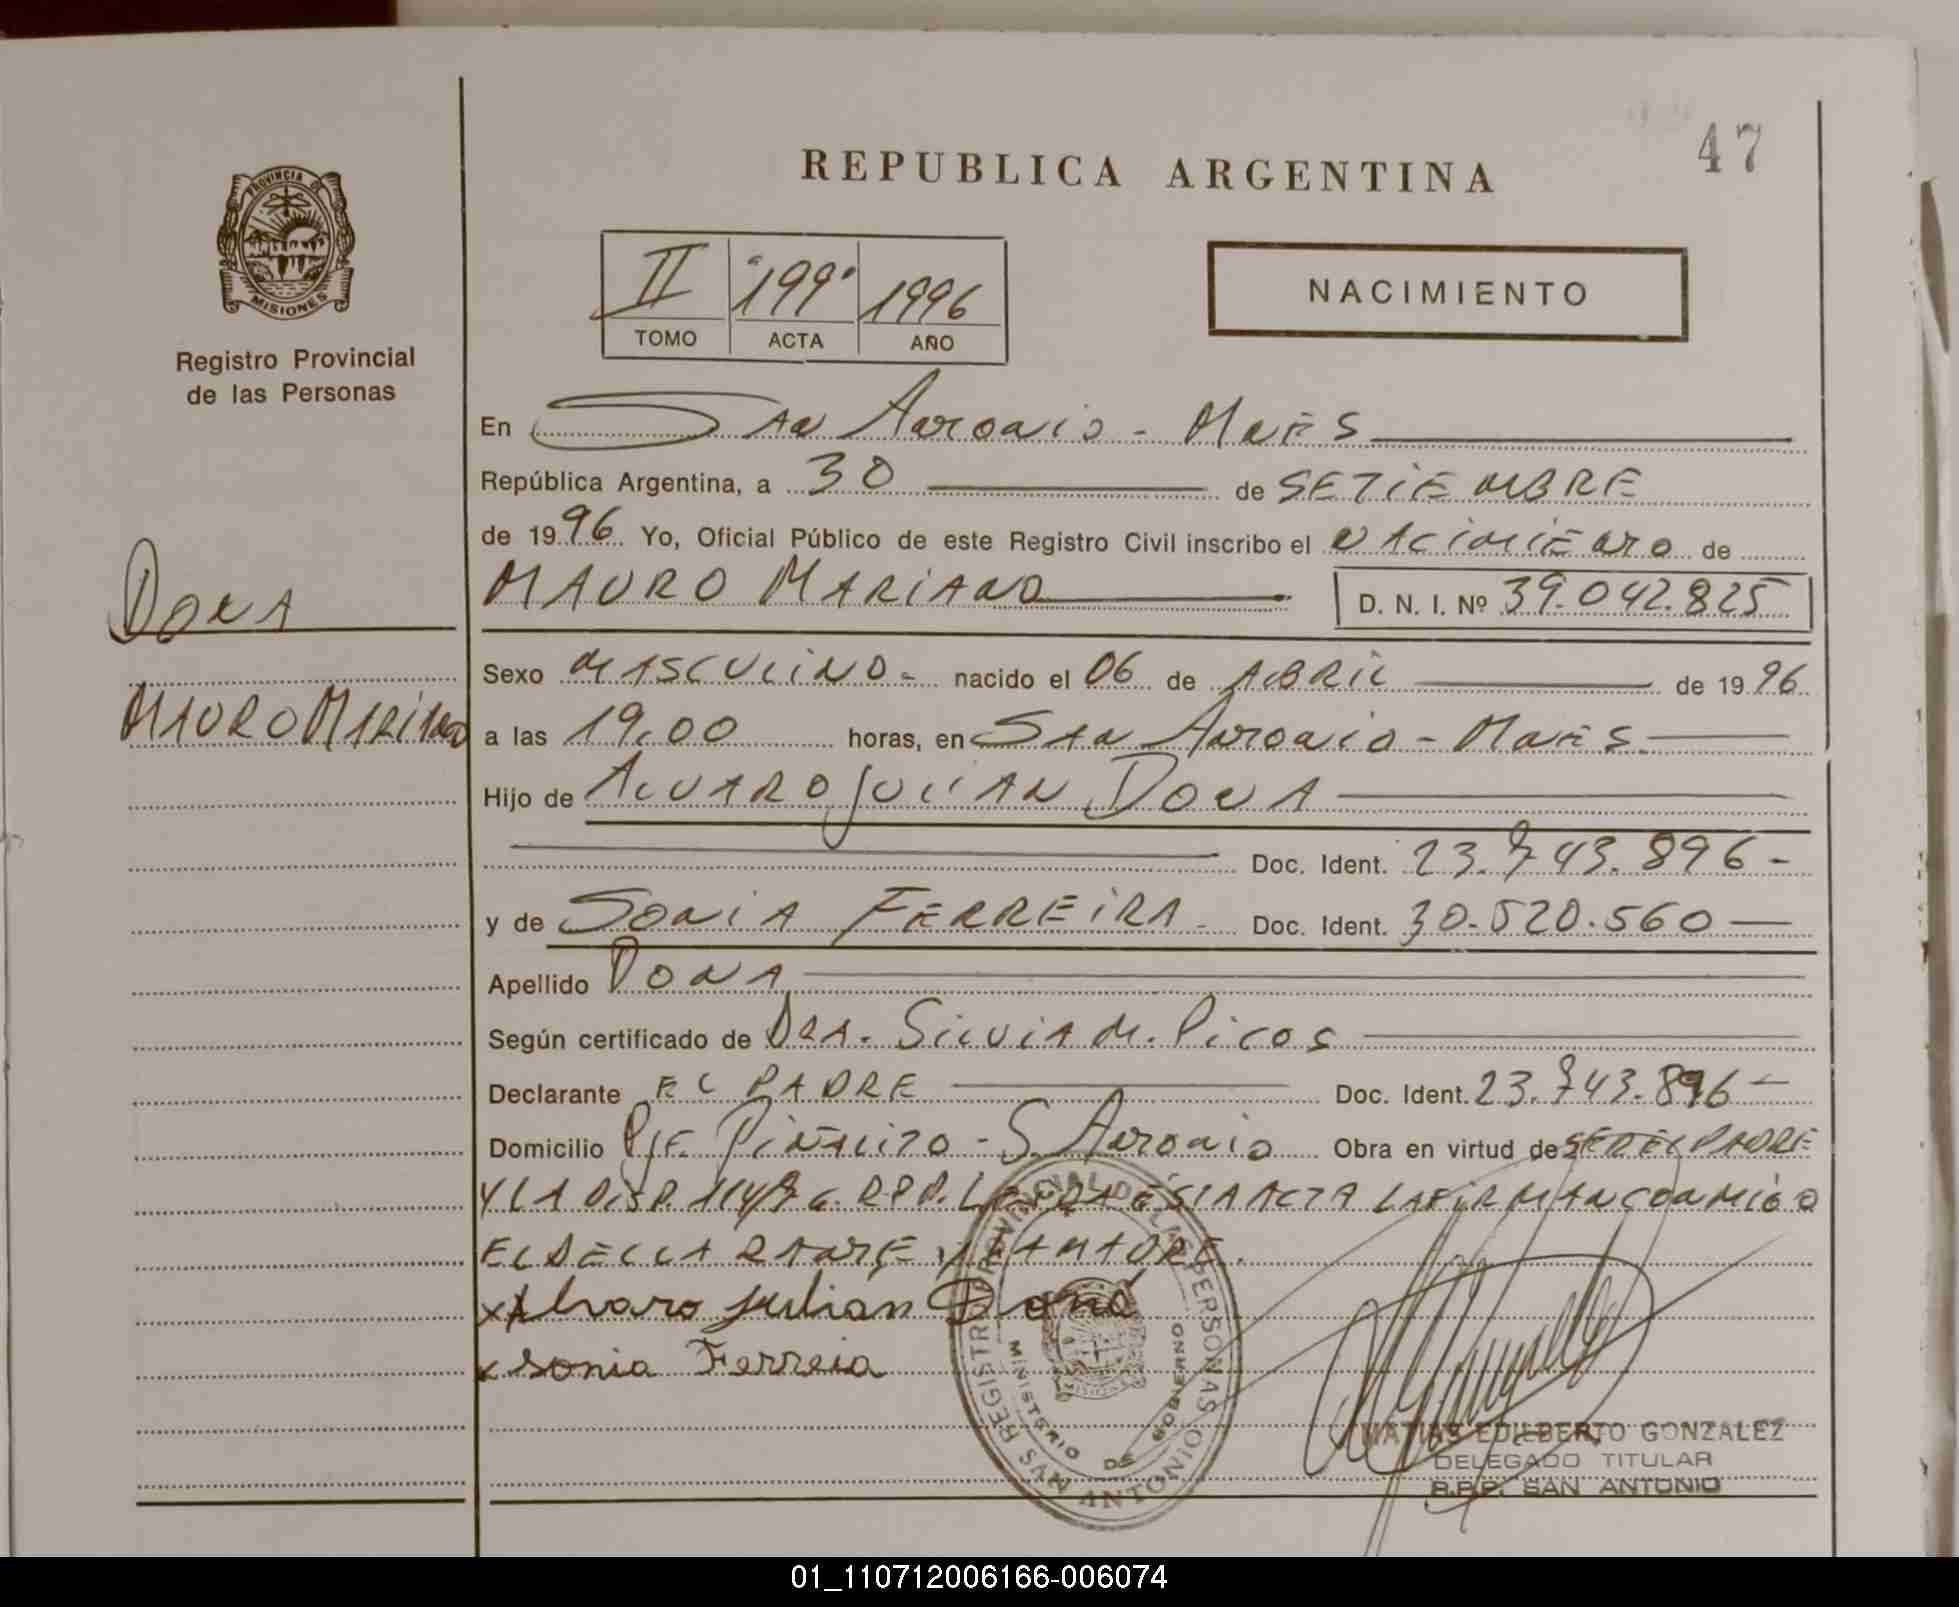 47
REPUBLICA ARGENTINA
PROVINCIA DE MISIONES
Registro Provincial
de las Personas
II "199" 1996
TOMO ACTA AÑO
NACIMIENTO
En San Antonio - Mnes
República Argentina, a 30 de SETIEMBRE
de 1996 Yo, Oficial Público de este Registro Civil inscribo el NACIMIENTO de
MAURO MARIANO D. N. I. Nº 39.042.825
DONA
MAURO MARIANO
Sexo MASCULINO - nacido el 06 de ABRIL de 1996
a las 19,00 horas, en San Antonio - Mnes
Hijo de ALVARO JULIAN DONA
Doc. Ident. 23.743.896 -
y de SONIA FERREIRA - Doc. Ident. 30.520.560
Apellido DONA
Según certificado de DRA. SILVIA M. PICOS
Declarante EL PADRE Doc. Ident. 23.743.896 -
Domicilio Pje. PIÑALITO - S. Antonio Obra en virtud de SER EL PADRE
Y LA DISP. R.P.P. ESTA ACTA LA FIRMAN CONMIGO
EL DECLARANTE Y LA MADRE.
x Alvaro Julian Doná
x Sonia Ferreia
REGISTRO PROVINCIAL DE LAS PERSONAS
MINISTERIO DE GOBIERNO
SAN ANTONIO
MATIAS EDILBERTO GONZALEZ
DELEGADO TITULAR
R.P.P. SAN ANTONIO
01_110712006166-006074